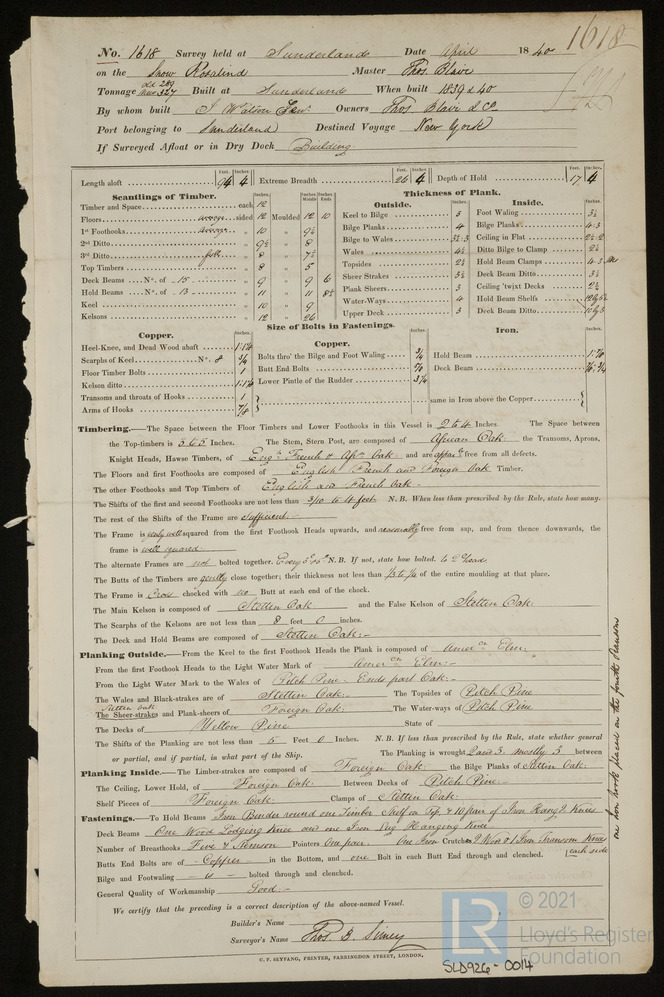 1618
No. 1618 Survey held at Sunderland Date April 1840
on the Snow Rosalind Master Thos. Blair
Tonnage old 289 new 327 Built at Sunderland When built 1839 & 40
By whom built J Watson Owners Thos Blair & Co
Port belonging to Sunderland Destined Voyage New York
If Surveyed Afloat or in Dry Dock Building
Feet. Inches. Feet. Inches. Feet. Inches.
Length aloft 94 4 Extreme Breadth 26 4 Depth of Hold 17 4
Scantlings of Timber. Thickness of Plank.
Inches. Inches Middle Inches Ends Outside. Inches. Inside. Inches.
Timber and Space each 12
Floors average sided 12 Moulded 12 10 Keel to Bilge 3 Foot Waling 3½
1st Foothooks average " 10 " 9½ Bilge Planks 4 Bilge Planks 4.3
2nd Ditto " 9½ " 8 Bilge to Wales 3½.3 Ceiling in Flat 2½.2
3rd Ditto " 8 " 7½ Wales 4½ Ditto Bilge to Clamp 2½
Top Timbers " 8 " 5 Topsides 2½ Hold Beam Clamps 4.3
Deck Beams No. of 15 " 9 " 9 6 Sheer Strakes 3½ Deck Beam Ditto 3½
Hold Beams No. of 13 " 11 " 11 8½ Plank Sheers 3 Ceiling 'twixt Decks 2½
Keel " 10 " 9 Water-Ways 4 Hold Beam Shelfs
Kelsons " 12 " 26 Upper Deck 3 Deck Beam Ditto
Size of Bolts in Fastenings.
Copper. Inches. Copper. Inches. Iron. Inches.
Heel-Knee, and Dead Wood abaft
Scarphs of Keel No. 8 ¾ Bolts thro' the Bilge and Foot Waling ¾ Hold Beam
Floor Timber Bolts 1 Butt End Bolts Deck Beam
Kelson ditto Lower Pintle of the Rudder
Transoms and throats of Hooks 1 same in Iron above the Copper
Arms of Hooks 7/8
Timbering.—The Space between the Floor Timbers and Lower Foothooks in this Vessel is 2 to 4 Inches. The Space between
the Top-timbers is 3 & 5 Inches. The Stem, Stern Post, are composed of African Oak the Transoms, Aprons,
Knight Heads, Hawse Timbers, of Engh. French & Afn. Oak and are free from all defects.
The Floors and first Foothooks are composed of English French and Foreign Oak Timber.
The other Foothooks and Top Timbers of English and French Oak
The Shifts of the first and second Foothooks are not less than 3/10 to 4 feet N.B. When less than prescribed by the Rule, state how many.
The rest of the Shifts of the Frame are Sufficient
The Frame is squared from the first Foothook Heads upwards, and reasonably free from sap, and from thence downwards, the
frame is well squared
The alternate Frames are not bolted together. N.B. If not, state how bolted.
The Butts of the Timbers are close together; their thickness not less than 1/3 to 1/4 of the entire moulding at that place.
The Frame is Cross chocked with no Butt at each end of the chock.
The Main Kelson is composed of Stettin Oak and the False Kelson of Stettin Oak.
The Scarphs of the Kelsons are not less than 8 feet 0 inches.
The Deck and Hold Beams are composed of Stettin Oak.
Planking Outside.—From the Keel to the first Foothook Heads the Plank is composed of Amercn Elm.
From the first Foothook Heads to the Light Water Mark of Amercn Elm.
From the Light Water Mark to the Wales of Pitch Pine. Ends part Oak.
The Wales and Black-strakes are of Stettin Oak. The Topsides of Pitch Pine
Stettin Oak
The Sheer-strakes and Plank-sheers of Foreign Oak. The Water-ways of Pitch Pine
The Decks of Yellow Pine State of
The Shifts of the Planking are not less than 5 Feet 0 Inches. N.B. If less than prescribed by the Rule, state whether general
or partial, and if partial, in what part of the Ship. The Planking is wrought 2 and 3. mostly 3 between
Planking Inside.—The Limber-strakes are composed of Foreign Oak. the Bilge Planks of Stettin Oak.
The Ceiling, Lower Hold, of Foreign Oak. Between Decks of Pitch Pine.
Shelf Pieces of Foreign Oak. Clamps of Stettin Oak.
Fastenings.—To Hold Beams Iron Binder round one Timber Shelf on Top, & 10 pair of Iron Hangg. Knees
Deck Beams One Wood Lodging Knee and one Iron Hanging Knee
Number of Breasthooks Five & Stemson Pointers One pair. One Iron Crutches 2 Wood 1 Iron Transom Knee each side
Butts End Bolts are of Copper in the Bottom, and one Bolt in each Butt End through and clenched.
Bilge and Footwaling 6 bolted through and clenched.
General Quality of Workmanship Good.
We certify that the preceding is a correct description of the above-named Vessel.
Builder's Name
Surveyor's Name Thos. B. Simey
C. F. SEYFANG, PRINTER, FARRINGDON STREET, LONDON.
one Iron hook placed on the fourth Transom
LR
© 2021
Lloyd's Register
Foundation
SLD926-0014